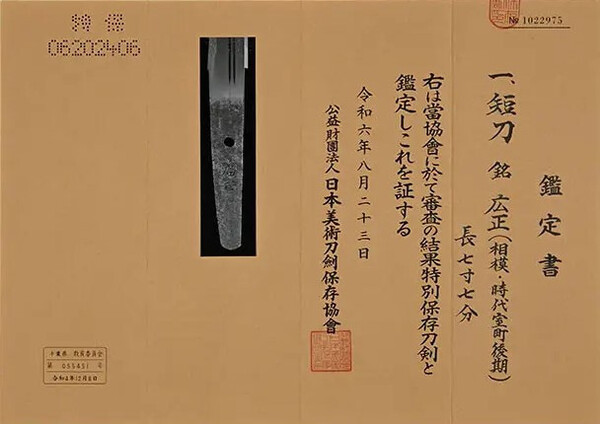 № 1022975
鑑定書
一、短刀 銘 広正(相模・時代室町後期)
長七寸七分
右は當協會に於て審査の結果特別保存刀剣と
鑑定しこれを証する
令和六年八月二十三日
公益財團法人 日本美術刀剣保存協會
特保
06202406
千葉県 教育委員会
第 055451 号
令和4年12月8日